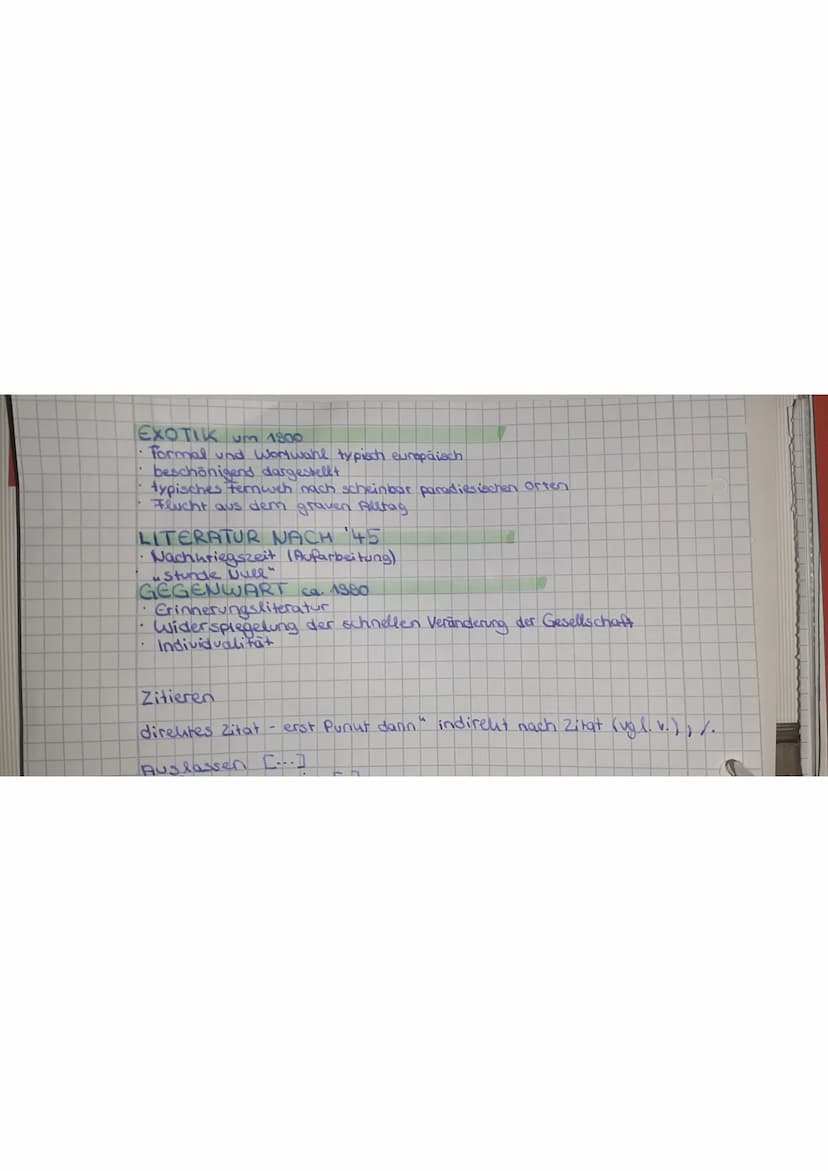 EXOTIK um 1800
· Formal und Wortwahl typisch europäisch
· beschönigend dargestellt
· typisches Fernweh nach scheinbar paradiesischen Orten
· Flucht aus dem grauen Alltag
LITERATUR NACH '45
· Nachkriegszeit (Aufarbeitung)
· „Stunde Null"
GEGENWART ca. 1980
· Erinnerungsliteratur
· Widerspiegelung der schnellen Veränderung der Gesellschaft
· Individualität
Zitieren
direktes Zitat - erst Punkt dann " indirekt nach Zitat (vgl. v.), /.
Auslassen [...]